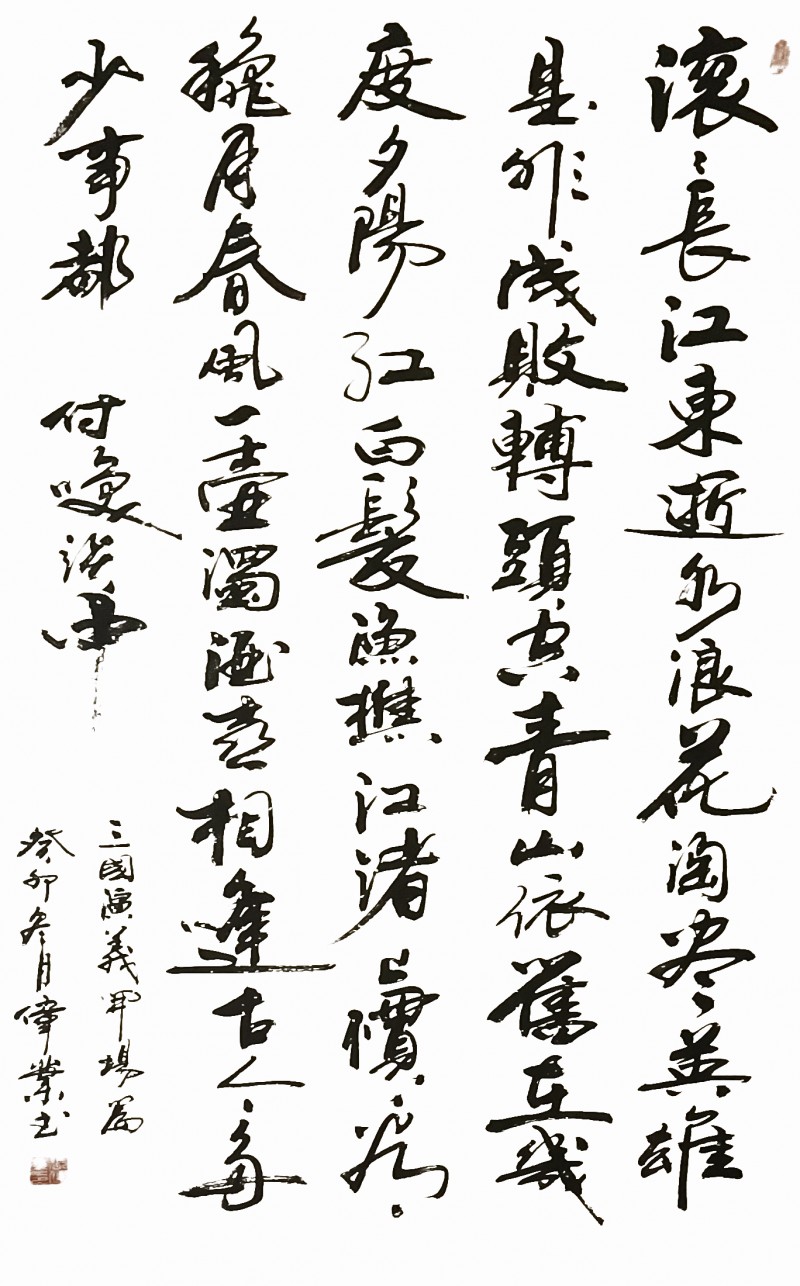 滚滚長江東逝水浪花淘尽英雄
是非成敗轉頭空青山依舊在幾
度夕陽红白髮漁樵江渚上慣看
穐月春風一壺濁酒喜相逢古今多
少事都付笑談中
三國演義開場篇
癸卯冬月偉業书